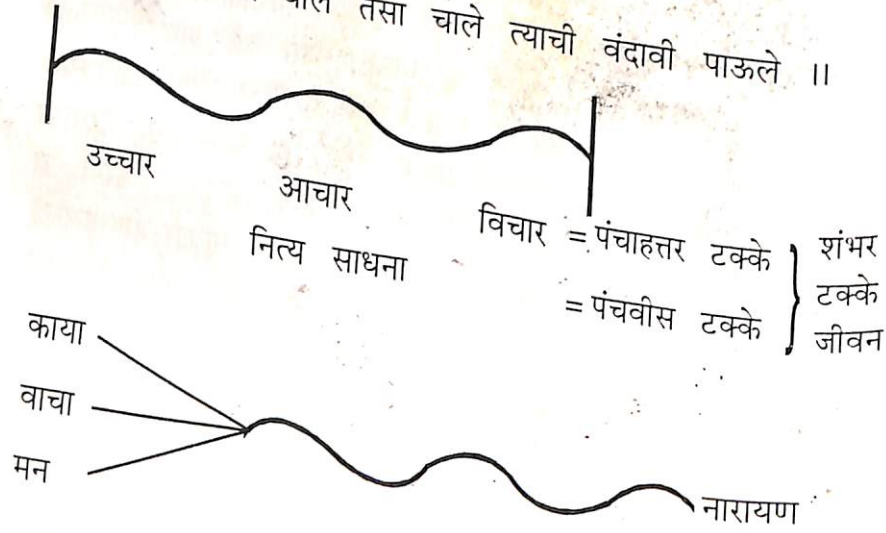 तसा चाले त्याची वंदावी पाऊले ॥
उच्चार
आचार
विचार = पंचाहत्तर टक्के } शंभर
नित्य साधना = पंचवीस टक्के टक्के
जीवन
काया
वाचा
मन
नारायण